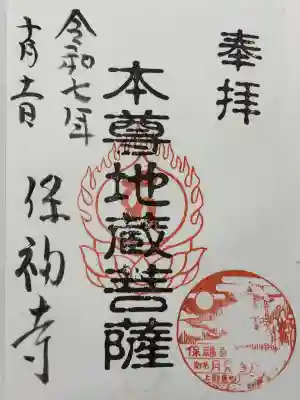 奉拝
本尊地蔵菩薩
令和七年
十月十一日
保福寺
保福寺